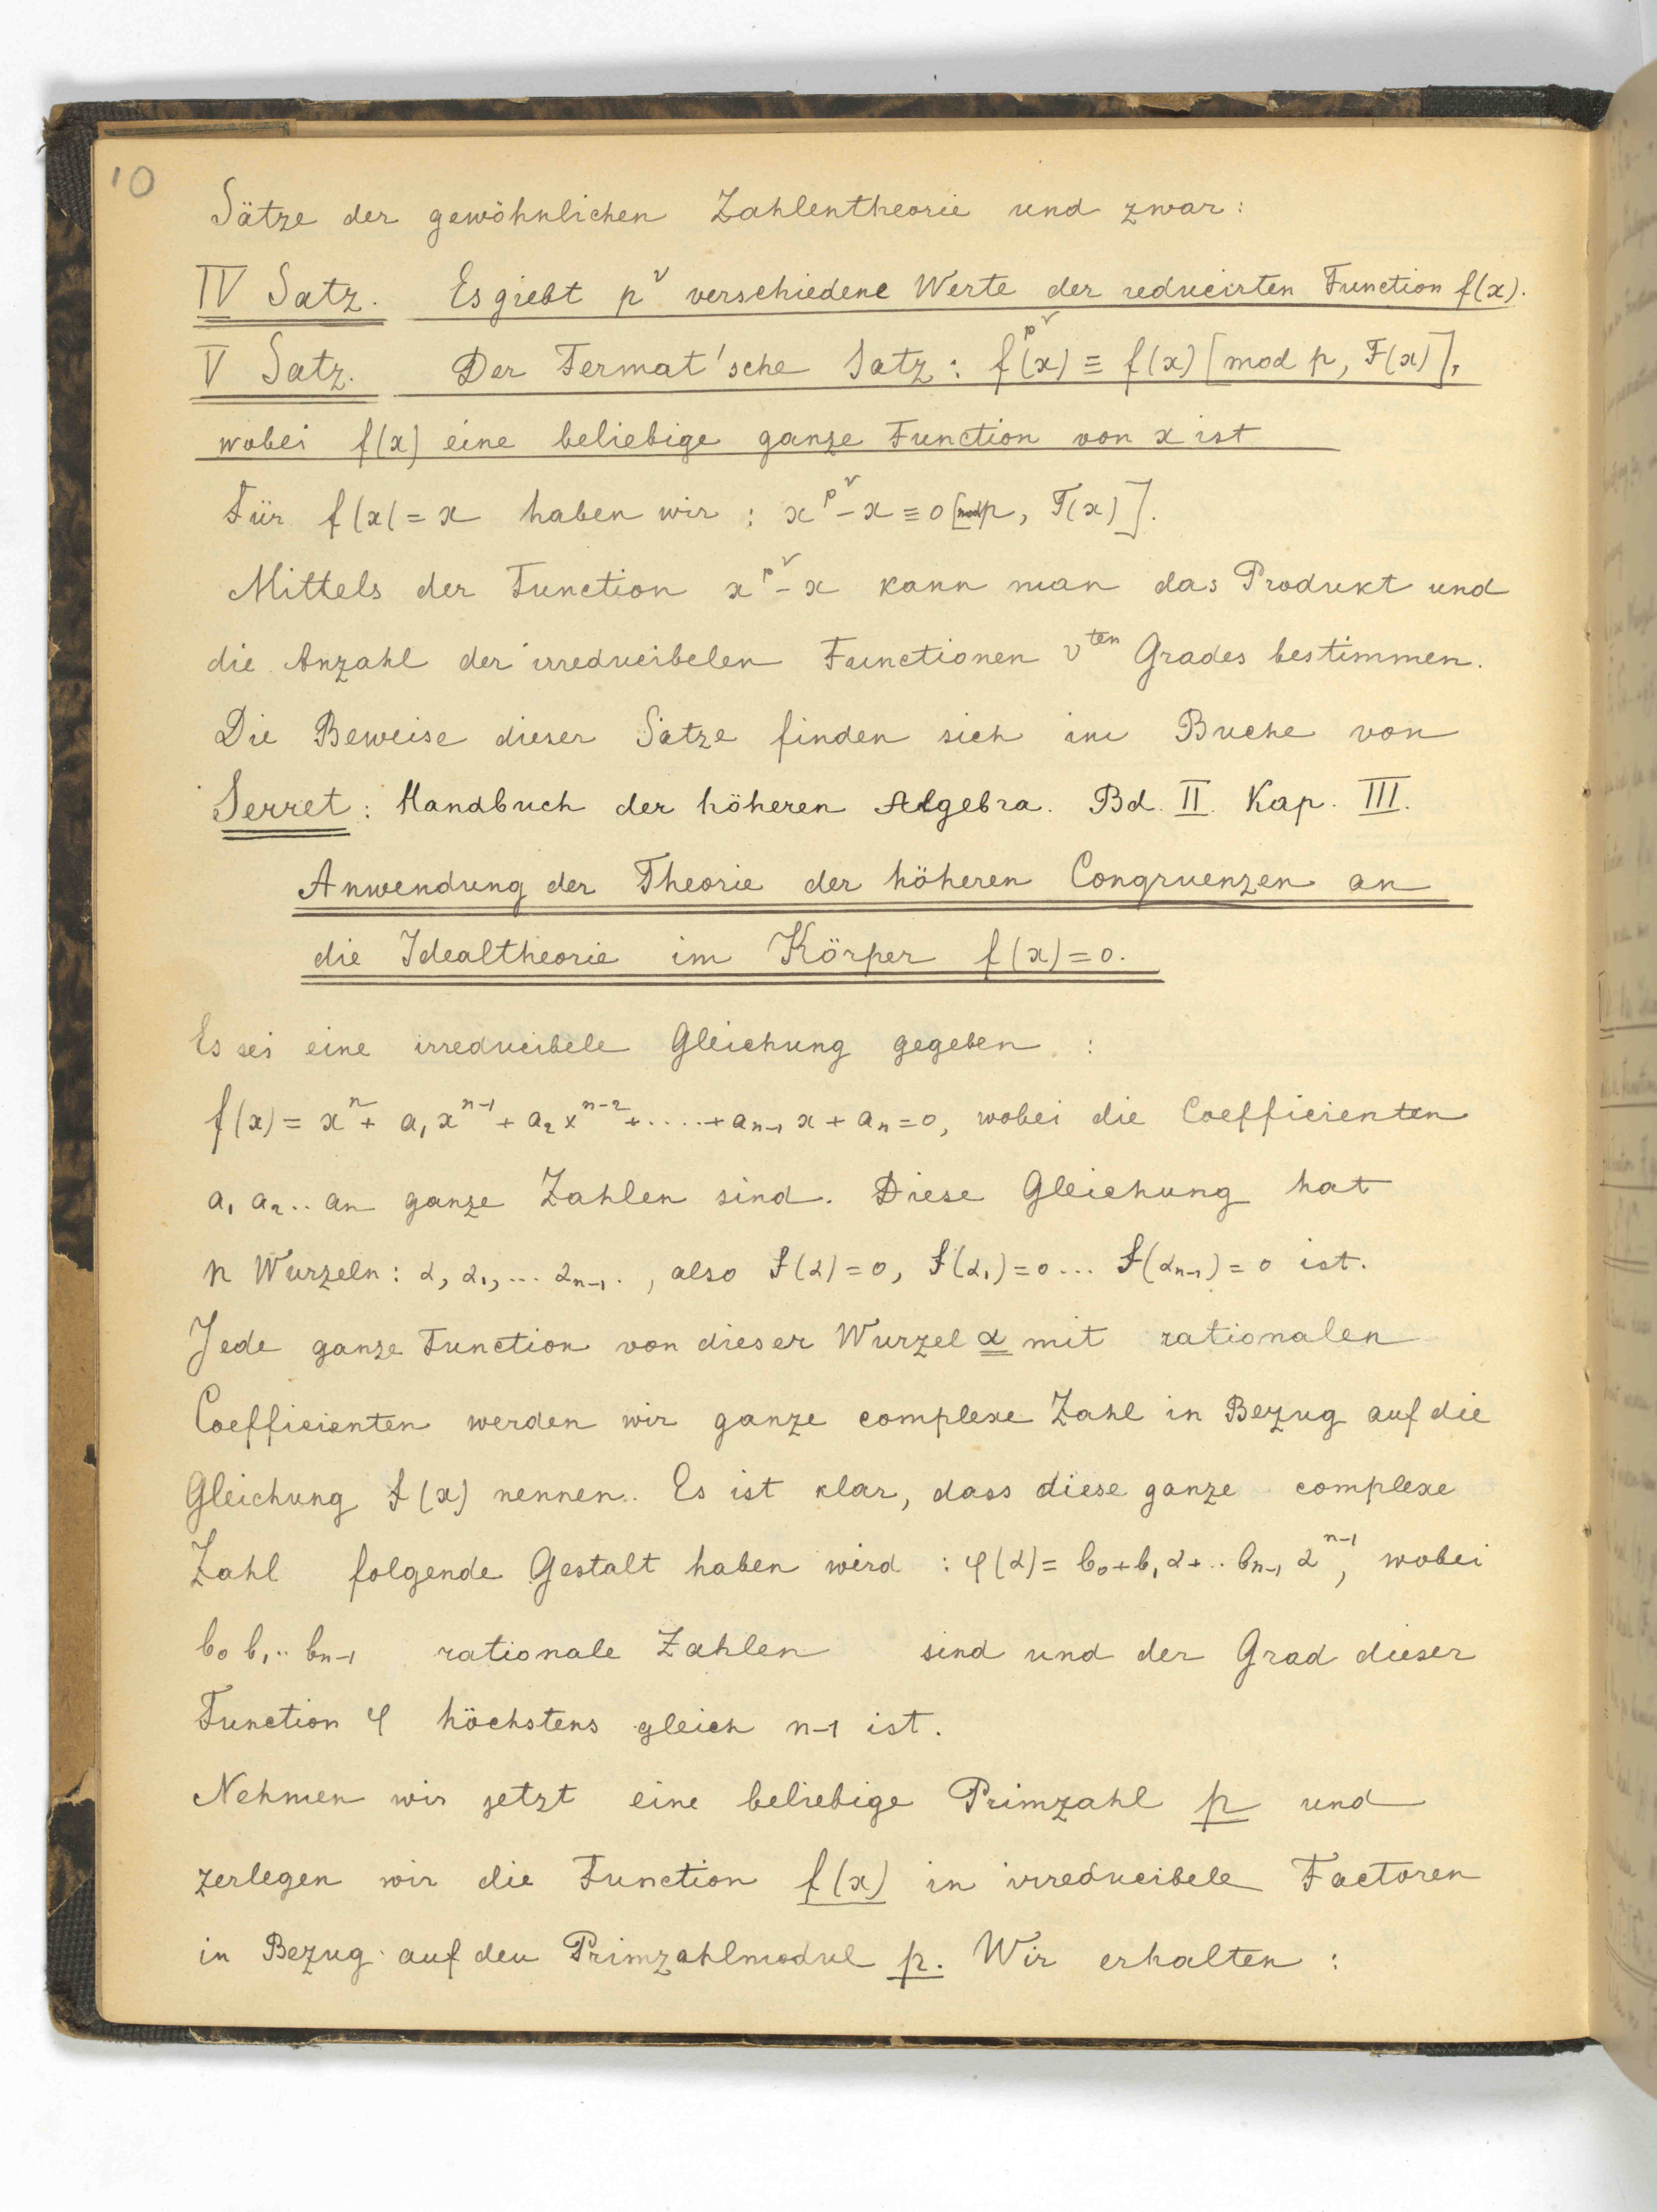 10
Sätze der gewöhnlichen Zahlentheorie und zwar:
IV Satz. Es giebt p^ν verschiedene Werte der reducirten Function f(x).
V Satz. Der Fermat'sche Satz: f^{p^ν}(x) ≡ f(x) [mod p, F(x)],
wobei f(x) eine beliebige ganze Function von x ist
Für f(x) = x haben wir: x^{p^ν} - x ≡ 0 [mod p, F(x)].
Mittels der Function x^{p^ν} - x kann man das Produkt und
die Anzahl der irreducibelen Functionen ν^{ten} Grades bestimmen.
Die Beweise dieser Sätze finden sich im Buche von
Serret: Handbuch der höheren Algebra. Bd. II. Kap. III.
Anwendung der Theorie der höheren Congruenzen an
die Idealtheorie im Körper f(x) = 0.
Es sei eine irreducibele Gleichung gegeben :
f(x) = x^n + a_1 x^{n-1} + a_2 x^{n-2} + ..... + a_{n-1} x + a_n = 0, wobei die Coefficienten
a_1 a_2 .. a_n ganze Zahlen sind. Diese Gleichung hat
n Wurzeln: α, α_1, ... α_{n-1}., also f(α) = 0, f(α_1) = 0 ... f(α_{n-1}) = 0 ist.
Jede ganze Function von dieser Wurzel α mit rationalen
Coefficienten werden wir ganze complexe Zahl in Bezug auf die
Gleichung f(x) nennen. Es ist klar, dass diese ganze complexe
Zahl folgende Gestalt haben wird : φ(α) = b_0 + b_1 α + .. b_{n-1} α^{n-1}, wobei
b_0 b_1 .. b_{n-1} rationale Zahlen sind und der Grad dieser
Function φ höchstens gleich n-1 ist.
Nehmen wir jetzt eine beliebige Primzahl p und
zerlegen wir die Function f(x) in irreducibele Factoren
in Bezug auf den Primzahlmodul p. Wir erhalten :